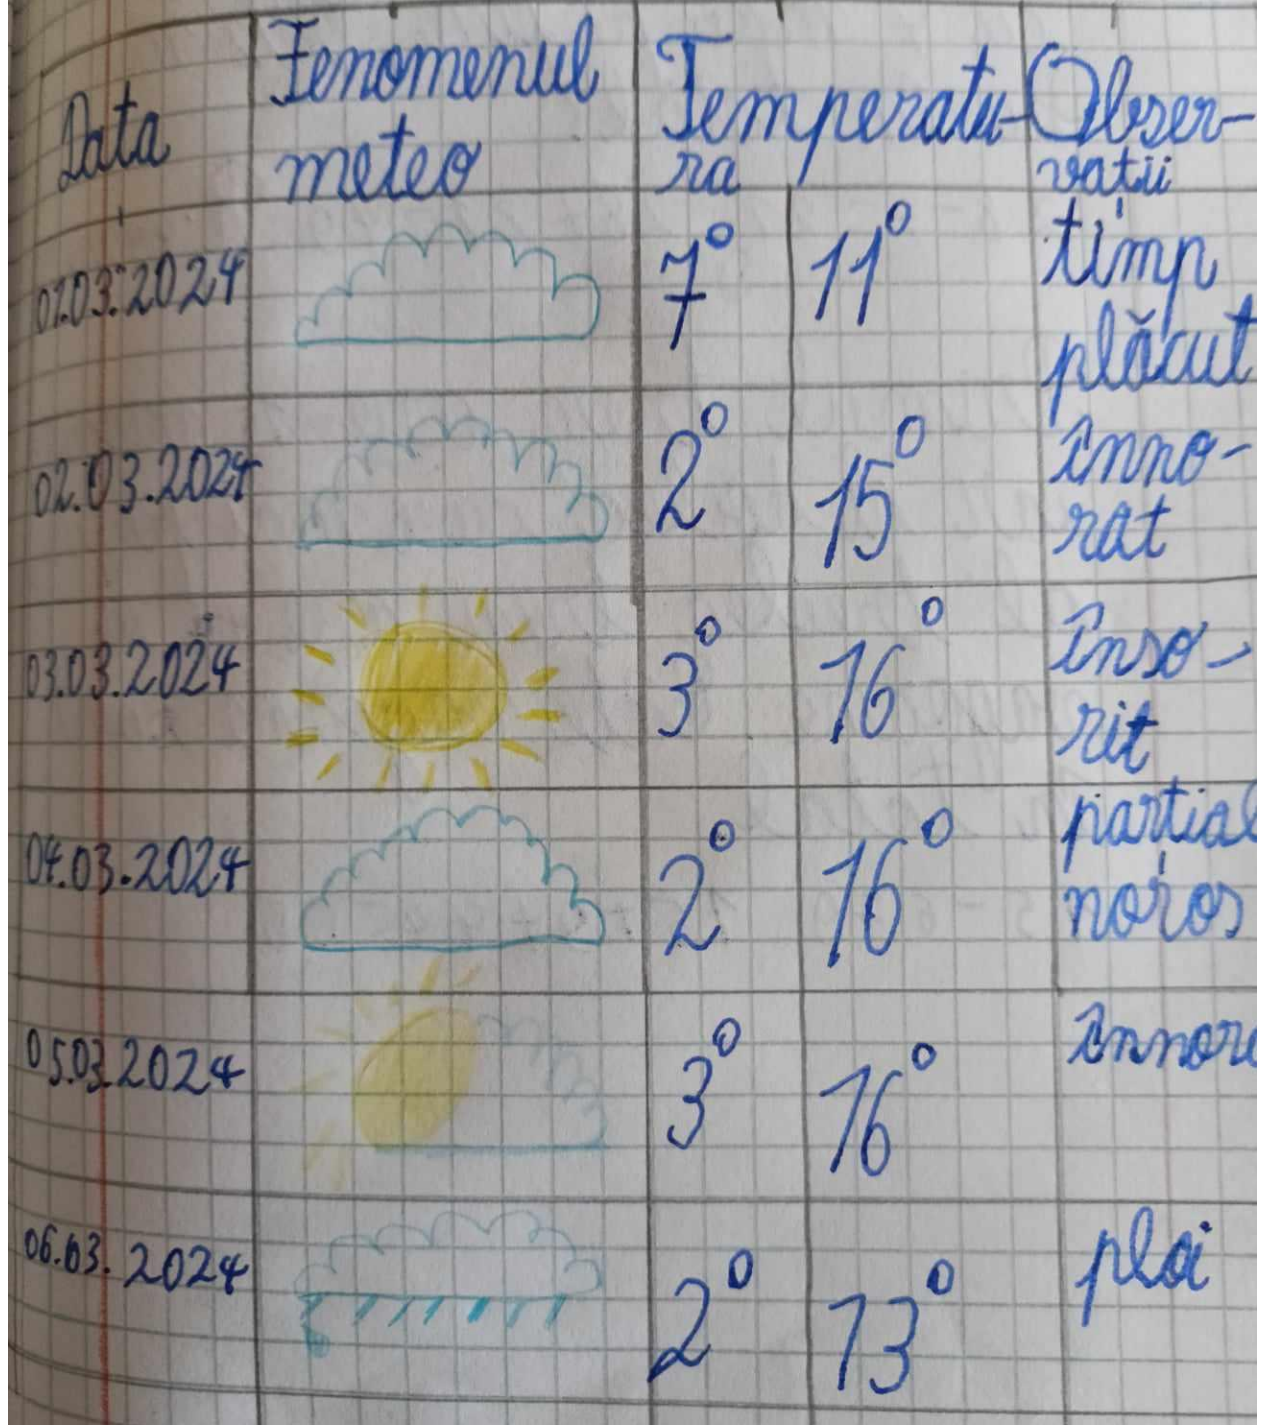 Data
Fenomenul
meteo
Temperatu-
ra
Obser-
vații
01.03.2024
7° 11°
timp
plăcut
02.03.2024
2° 15°
Înno-
rat
03.03.2024
3° 16°
Înso-
rit
04.03.2024
2° 16°
parțial
noros
05.03.2024
3° 16°
06.03.2024
2° 13°
ploi